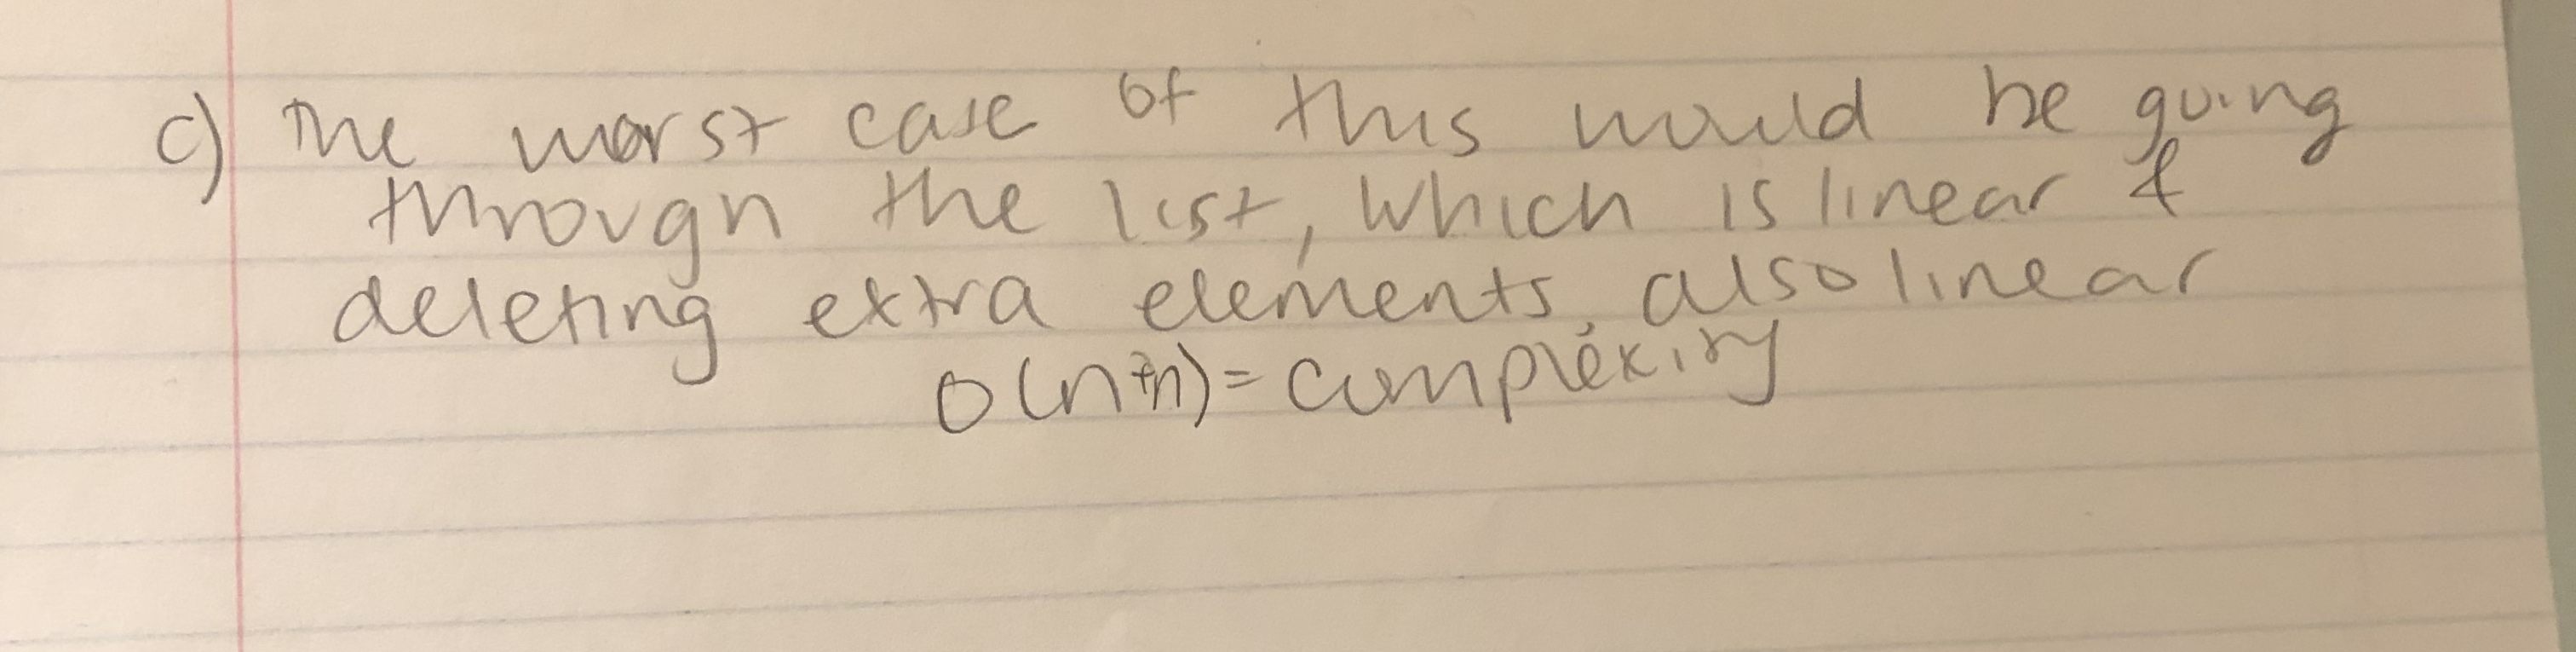 c) The worst case of this would be going
through the list, which is linear &
deleting extra elements, also linear
O(n+n) = complexity